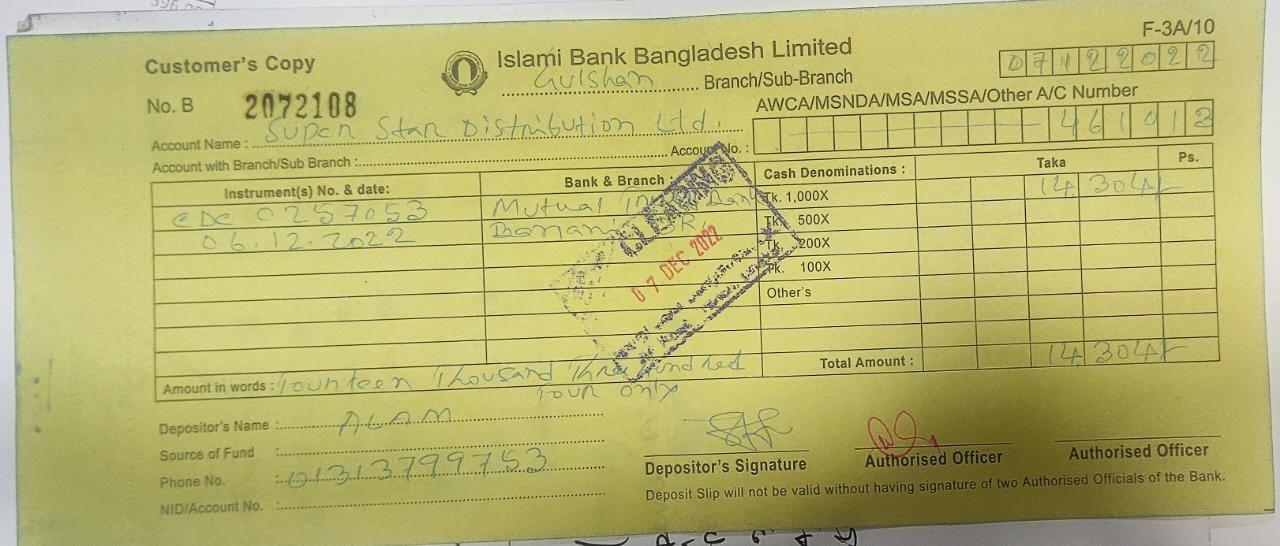 F-3A/10
Customer's Copy
Islami Bank Bangladesh Limited
07122022
Gulshan Branch/Sub-Branch
No. B 2072108
AWCA/MSNDA/MSA/MSSA/Other A/C Number
Account Name : Super Star Distribution Ltd.
461013
Account with Branch/Sub Branch : Account No. :
Instrument(s) No. & date: Bank & Branch : Cash Denominations : Taka Ps.
CDC 0257053 Mutual Bank Tk. 1,000X 14,304/-
06.12.2022 Banani BR Tk. 500X
Tk. 200X
Pk. 100X
Other's
CLEARING
07 DEC 2022
Total Amount : 14,304/-
Amount in words : Fourteen Thousand Three Hundred
Four only
Depositor's Name : ALAM
Source of Fund :
Phone No. : 01313799753
NID/Account No. :
Depositor's Signature Authorised Officer Authorised Officer
Deposit Slip will not be valid without having signature of two Authorised Officials of the Bank.